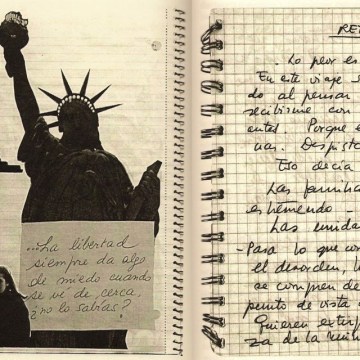 ...La libertad
siempre da algo
de miedo cuando
se ve de cerca,
¿no lo sabías?
RE
Lo peor es
En este viaje s
do al pensar
recibirme con
anted. Porque e
nas. Despista
Eso decía
Las familia
estremiendo
Las unida
- Pasa lo que con
el desorden, l
se comprende
punto de vista
Quieren exter
za de la